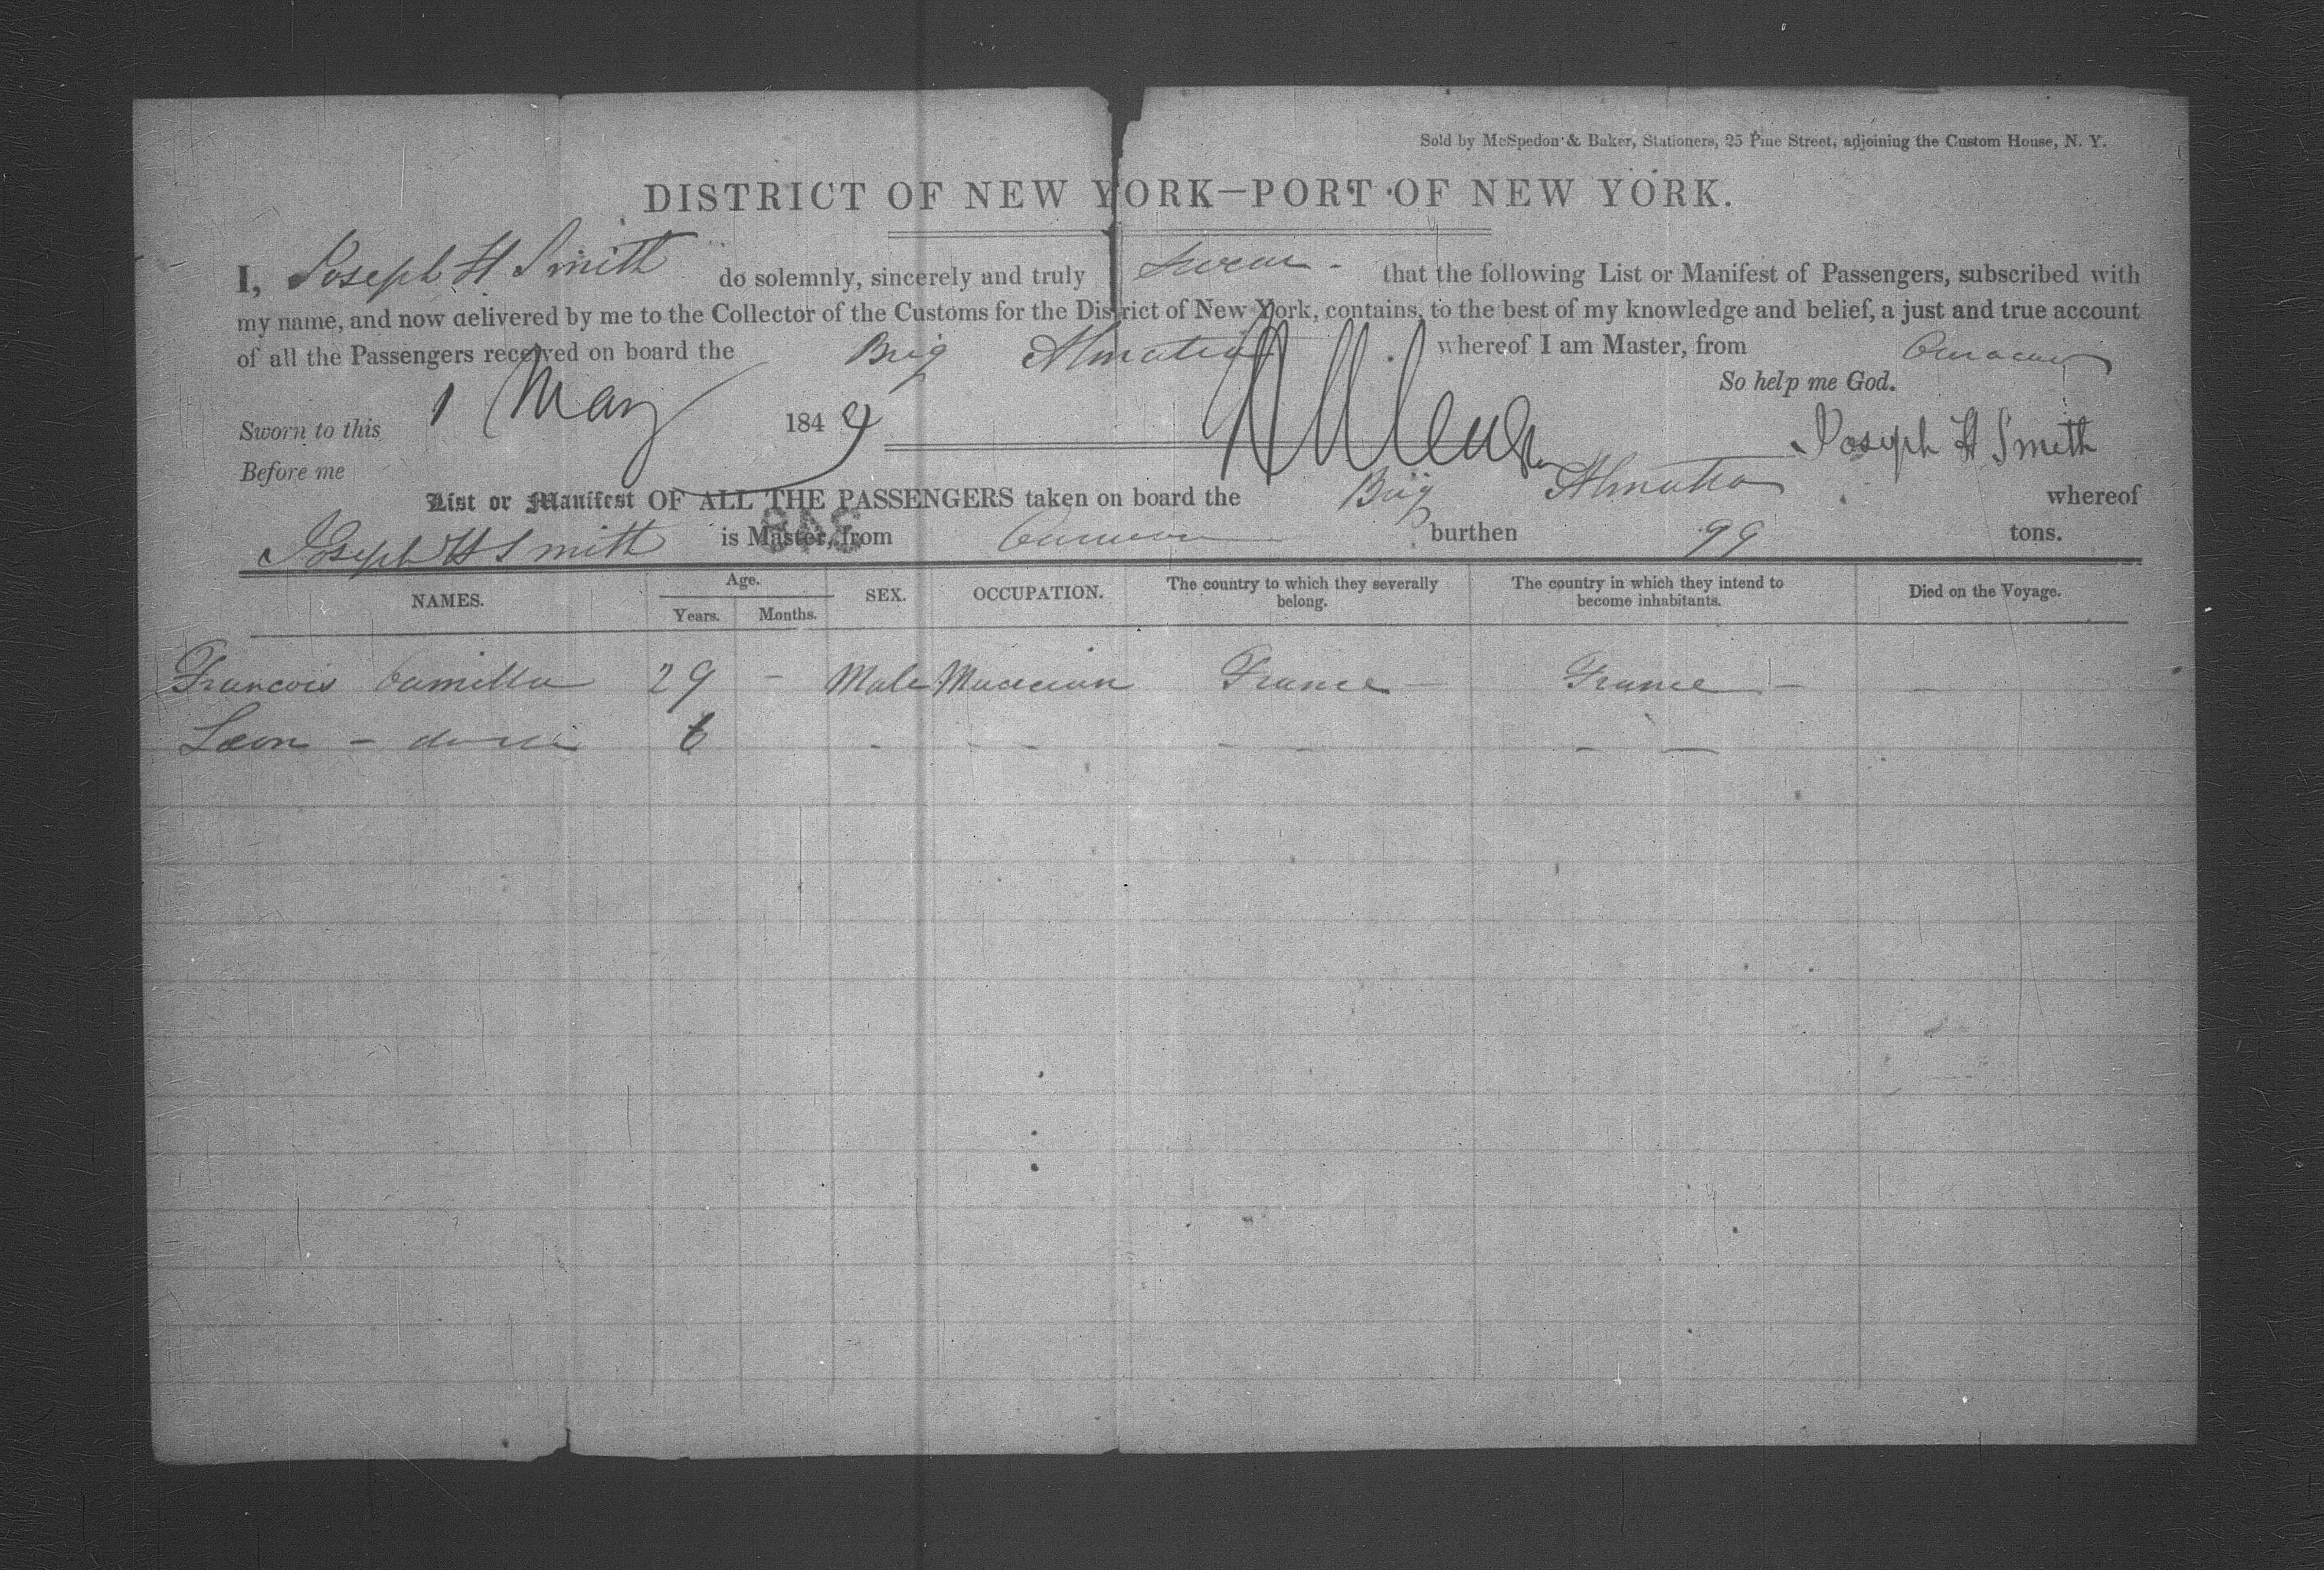 Sold by McSpedon & Baker, Stationers, 25 Pine Street, adjoining the Custom House, N. Y.
DISTRICT OF NEW YORK—PORT OF NEW YORK.
I, Joseph H Smith do solemnly, sincerely and truly swear - that the following List or Manifest of Passengers, subscribed with
my name, and now delivered by me to the Collector of the Customs for the District of New York, contains, to the best of my knowledge and belief, a just and true account
of all the Passengers received on board the Brig whereof I am Master, from Curacao
So help me God.
Sworn to this 1 May 1849 Joseph H Smith
Before me
List or Manifest OF ALL THE PASSENGERS taken on board the Brig whereof
Joseph H Smith is Master, from Curacao burthen 99 tons.
348
NAMES. Age. SEX. OCCUPATION. The country to which they severally belong. The country in which they intend to become inhabitants. Died on the Voyage.
Years. Months.
Francois Camilla 29 - Male Musician France - France - -
Leon - 6 - - - - - - -